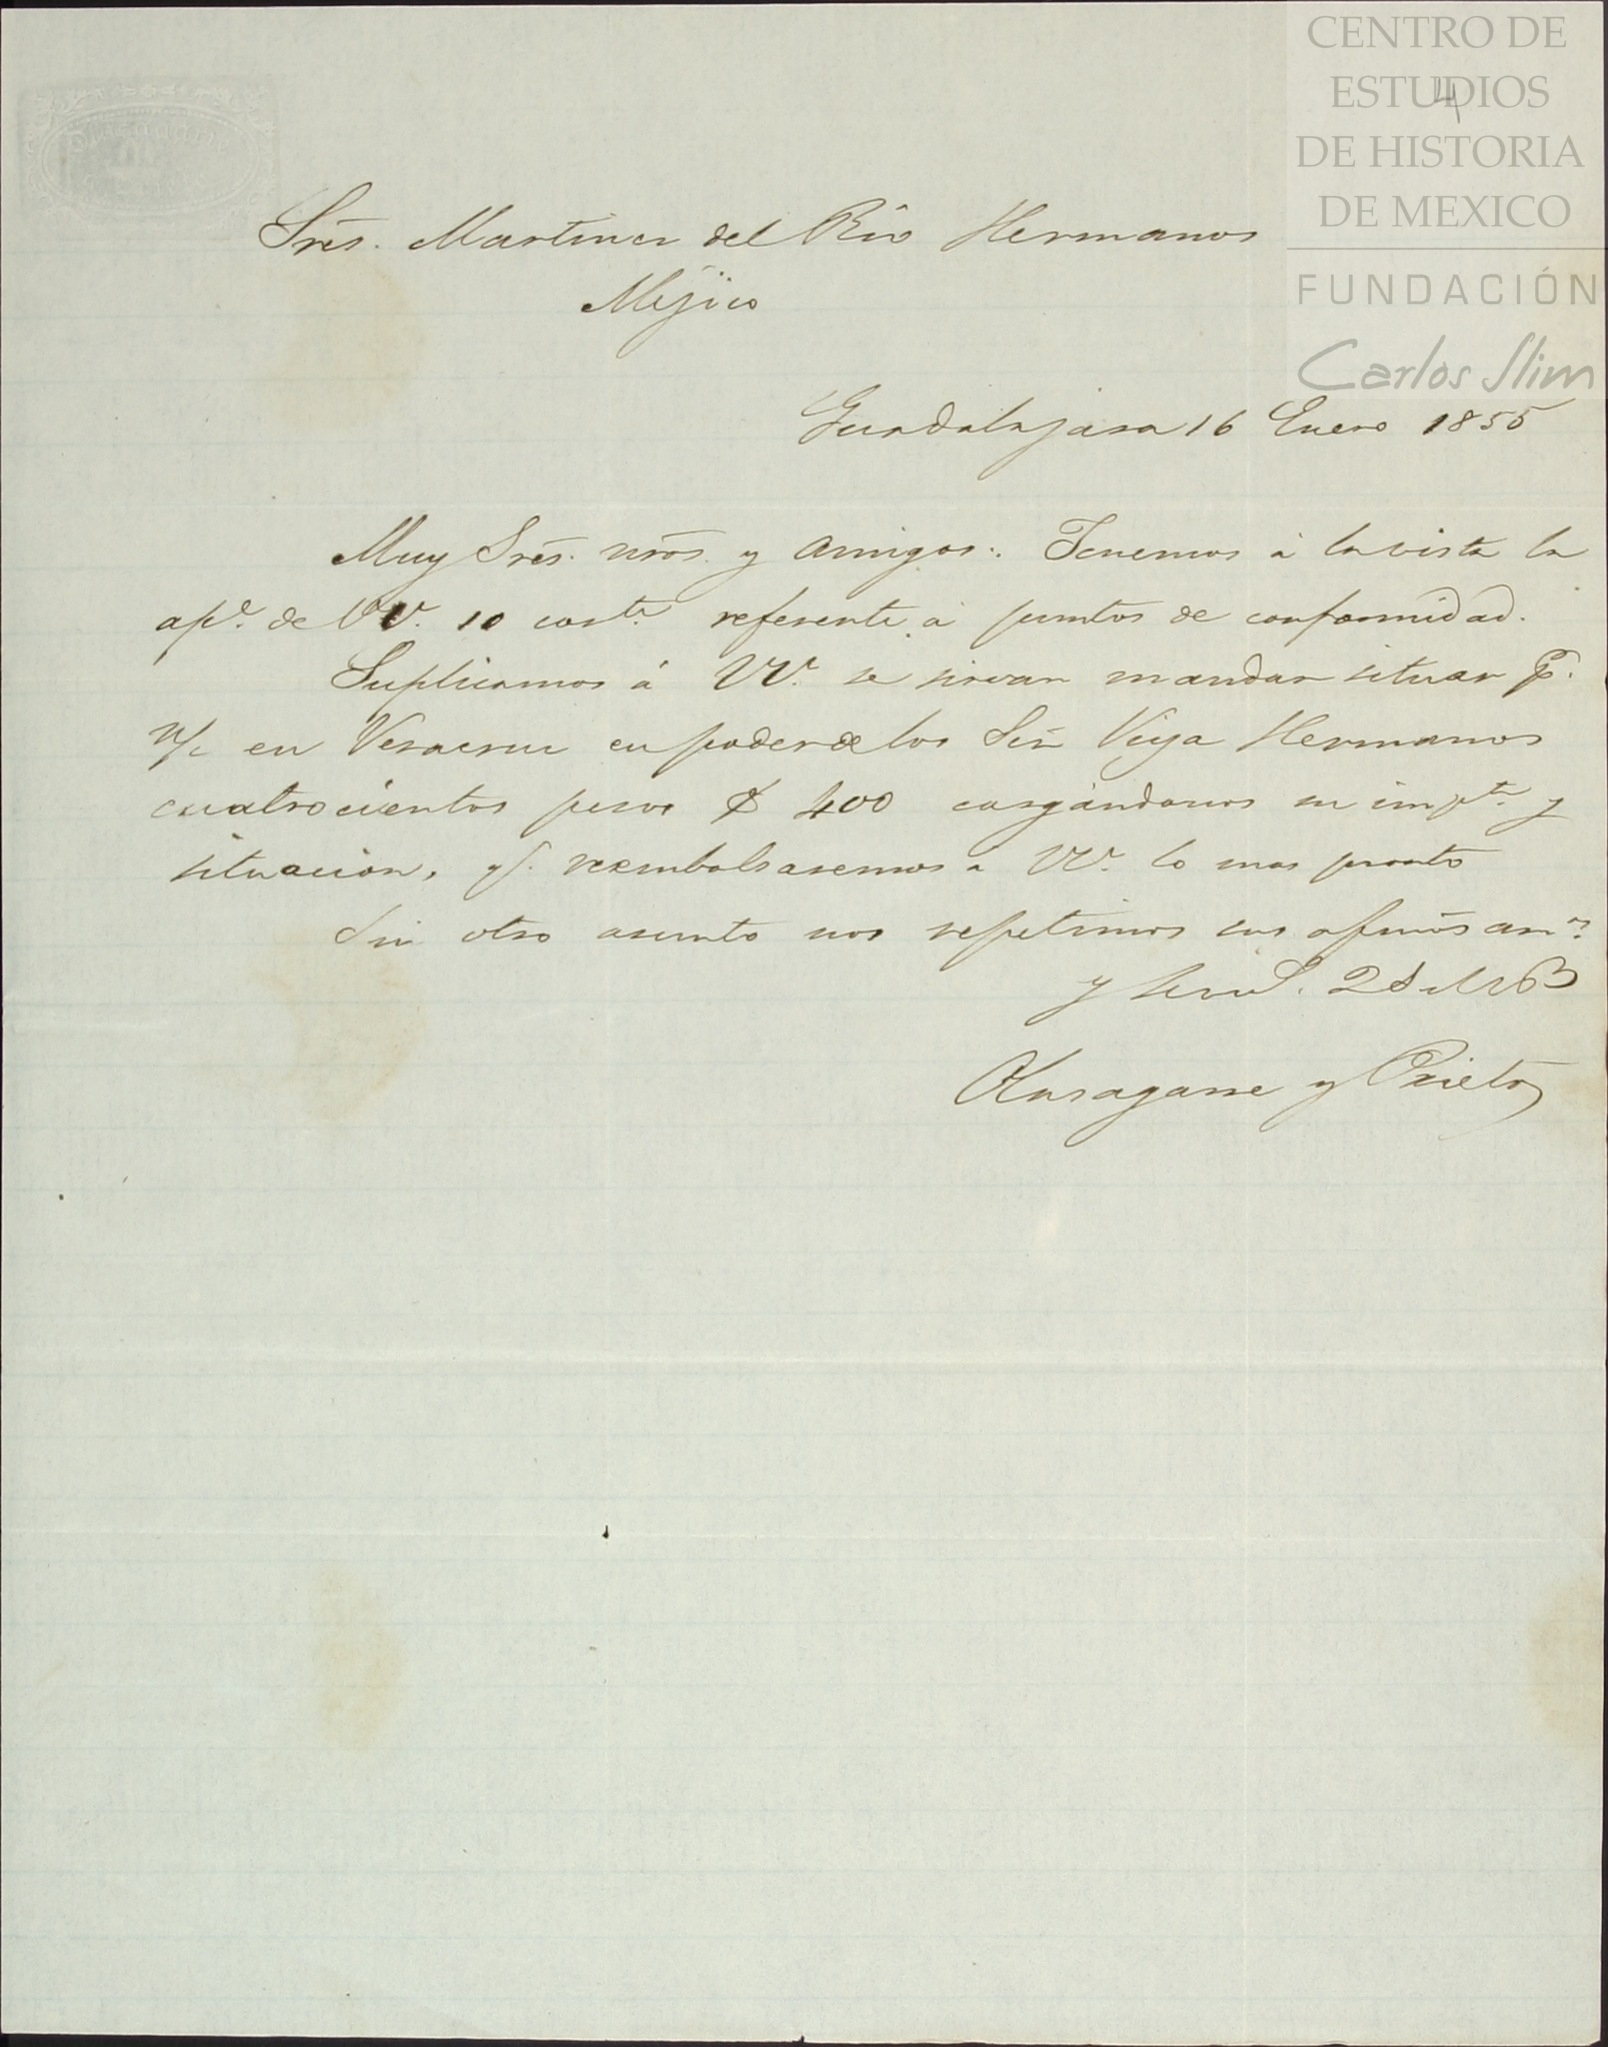 CENTRO DE
ESTUDIOS
DE HISTORIA
DE MEXICO
FUNDACIÓN
Carlos Slim
4
Sres. Martinez del Rio Hermanos
Mejico
Guadalajara 16 Enero 1855
Muy Sres. nros. y amigos: Tenemos á la vista la
apª. de VV. 10 corte. referente á puntos de conformidad.
Suplicamos á VV. se sirvan mandar situar p.
n/c en Veracruz en poder de los Sres Viya Hermanos
cuatrocientos pesos $ 400 cargándonos su impte. y
situacion, q. reembolsaremos a VV. lo mas pronto
Sin otro asunto nos repetimos sus afmos am.s
y Servs. Q S M B
Olasagarre y Prieto